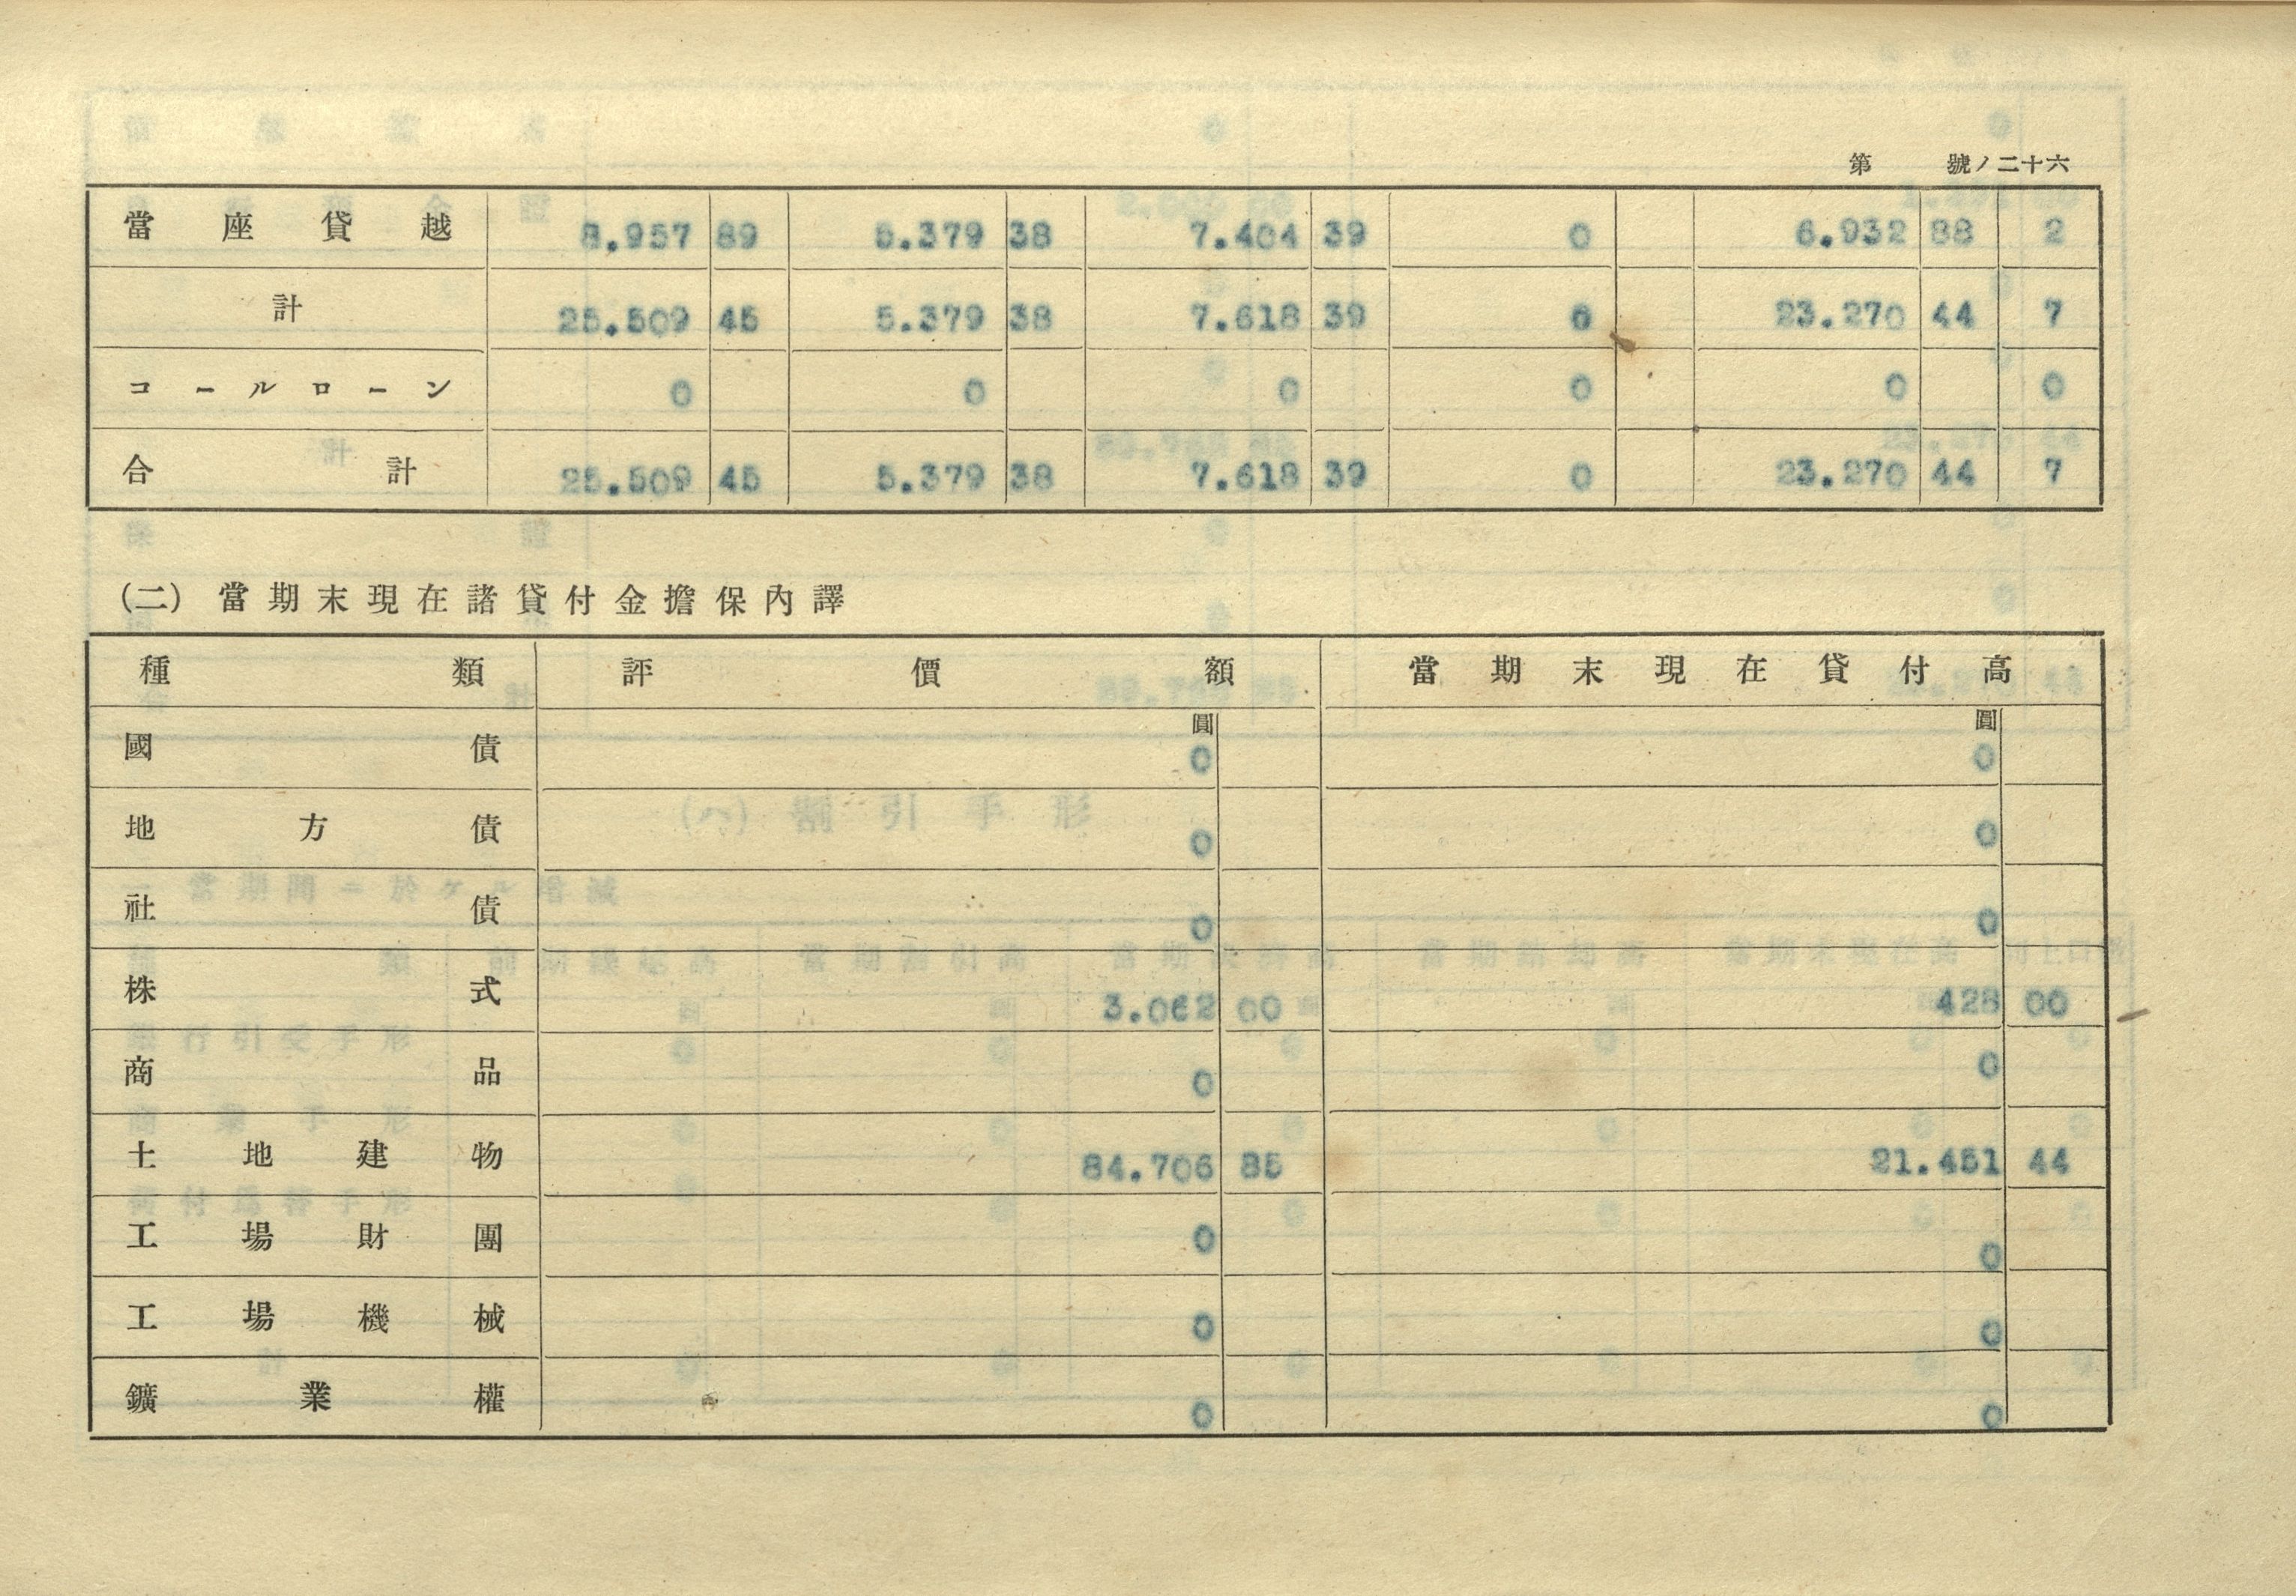 第 號ノ二十六
當座貸越 8.957 89 5.379 38 7.404 39 0 6.932 88 2
計 25.509 45 5.379 38 7.618 39 0 23.270 44 7
コールローン 0 0 0 0 0 0
合計 25.509 45 5.379 38 7.618 39 0 23.270 44 7
(二) 當期末現在諸貸付金擔保內譯
種類 評價額 當期末現在貸付高
圓 圓
國債 0 0
地方債 0 0
社債 0 0
株式 3.062 00 428 00
商品 0 0
土地建物 84.706 85 21.451 44
工場財團 0 0
工場機械 0 0
鑛業權 0 0